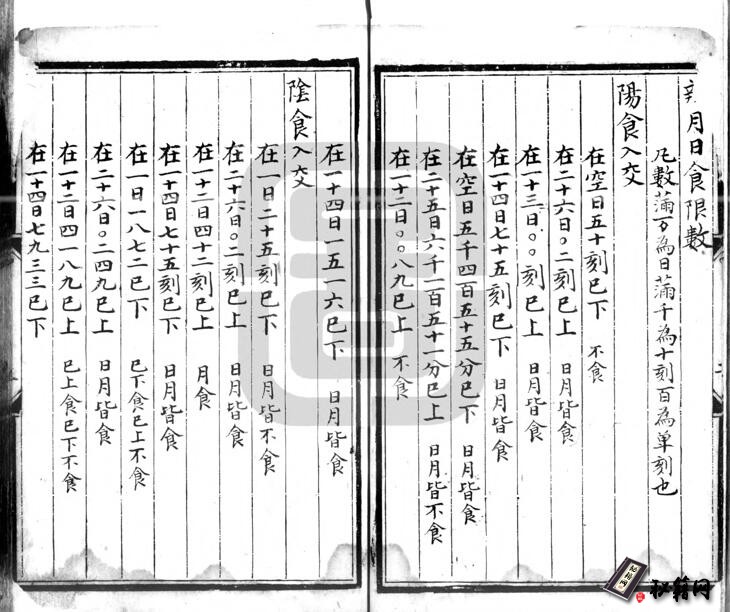 辛月日食限數
凡數滿万為日滿千為十刻百為单刻也
陽食入交
在空日五十刻已下 不食
在二十六日〇二刻已上 日月皆食
在一十三日〇〇刻已上 日月皆食
在一十四日七十五刻已下 日月皆食
在空日五千四百五十五分已下 日月皆食
在二十五日六千一百五十一分已上 日月皆不食
在一十二日〇〇八九已上 不食
在一十四日一五一六已下 日月皆食
陰食入交
在一日二十五刻已下 日月皆不食
在二十六日〇二刻已上 日月皆食
在一十二日四十二刻已上 月食
在一十四日七十五刻已下 日月皆食
在一日一八七二已下 已下食已上不食
在二十六日〇二四九已上 日月皆食
在一十二日四一八九已上 已上食已下不食
在一十四日七九三三已下
秘籍网